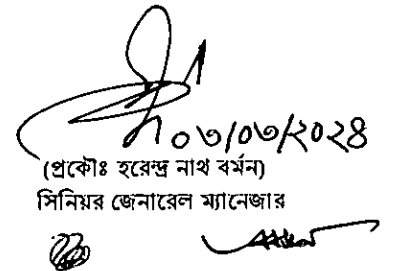 ০৩/০৩/২০২৪
(প্রকৌঃ হরেন্দ্র নাথ বর্মন)
সিনিয়র জেনারেল ম্যানেজার